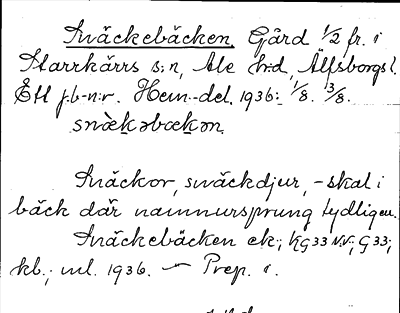 Snäckebäcken, Gård 1/2 fr. i
Starrkärrs s:n, Ale h:d, Älfsborgs l.
Ett j.b-n:r. Hem.-del. 1936: 1/8. 13/8.
snæ̀kəbækən
Snäckor, snäckdjur, -skal i
bäck där namnursprung tydligen.
Snäckebäcken ek; KG33 NV; G33;
kb.; ml. 1936. — Prep. i.